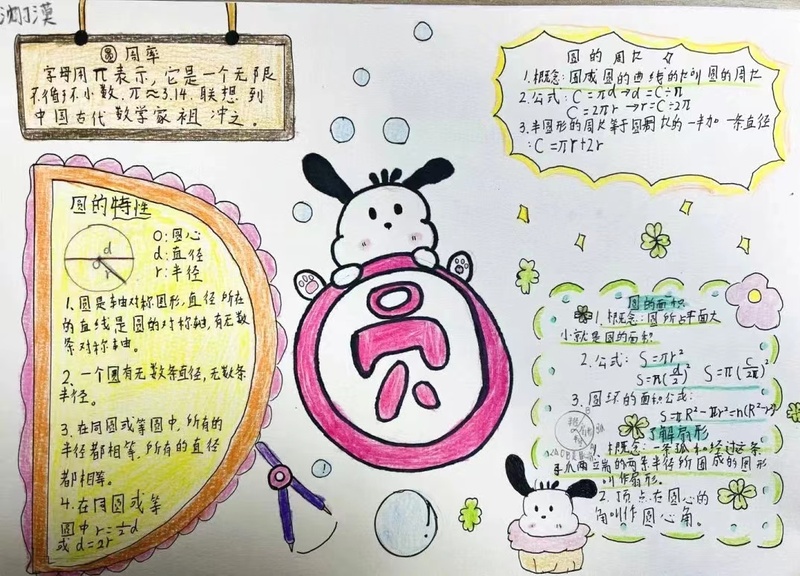 圆周率
字母用π表示，它是一个无限
不循环小数，π≈3.14，联想到
中国古代数学家祖冲之。
圆的周长
1.概念：围成圆的曲线的长叫圆的周长
2.公式：C=πd→d=C÷π
C=2πr→r=C÷2π
3.半圆形的周长等于圆周长的一半加一条直径
：C=πr+2r
圆的特性
O:圆心
d:直径
r:半径
d
o
r
1.圆是轴对称图形，直径所在
的直线是圆的对称轴，有无数
条对称轴。
2、一个圆有无数条直径，无数条
半径。
3、在同圆或等圆中，所有的
半径都相等，所有的直径
都相等。
4.在同圆或等
圆中r=½d
或d=2r
圆
圆的面积
1.概念：圆所占平面大
小就是圆的面积
2.公式：S=πr²
S=π(d/2)² S=π(C/2π)²
3.圆环的面积公式：
S=πR²-πr²=π(R²-r²)
了解扇形
概念：一条弧和经过这条
弧两端的两条半径所围成的图形
叫作扇形。
2.顶点在圆心的
角叫作圆心角。